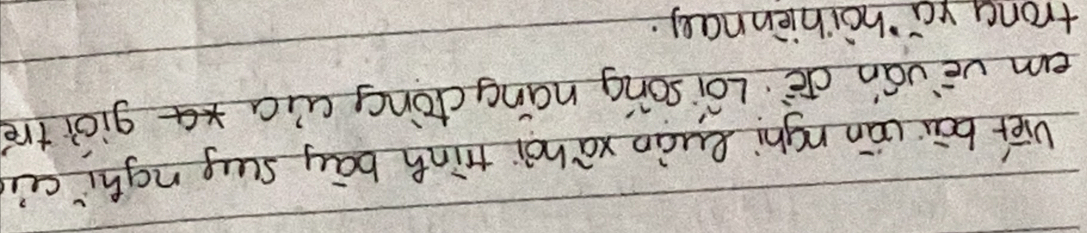 Viết bài văn nghị luận xã hội trình bày suy nghĩ của
em về vấn đề: Lối sống năng động của giới trẻ
trong xã hội hiện nay.